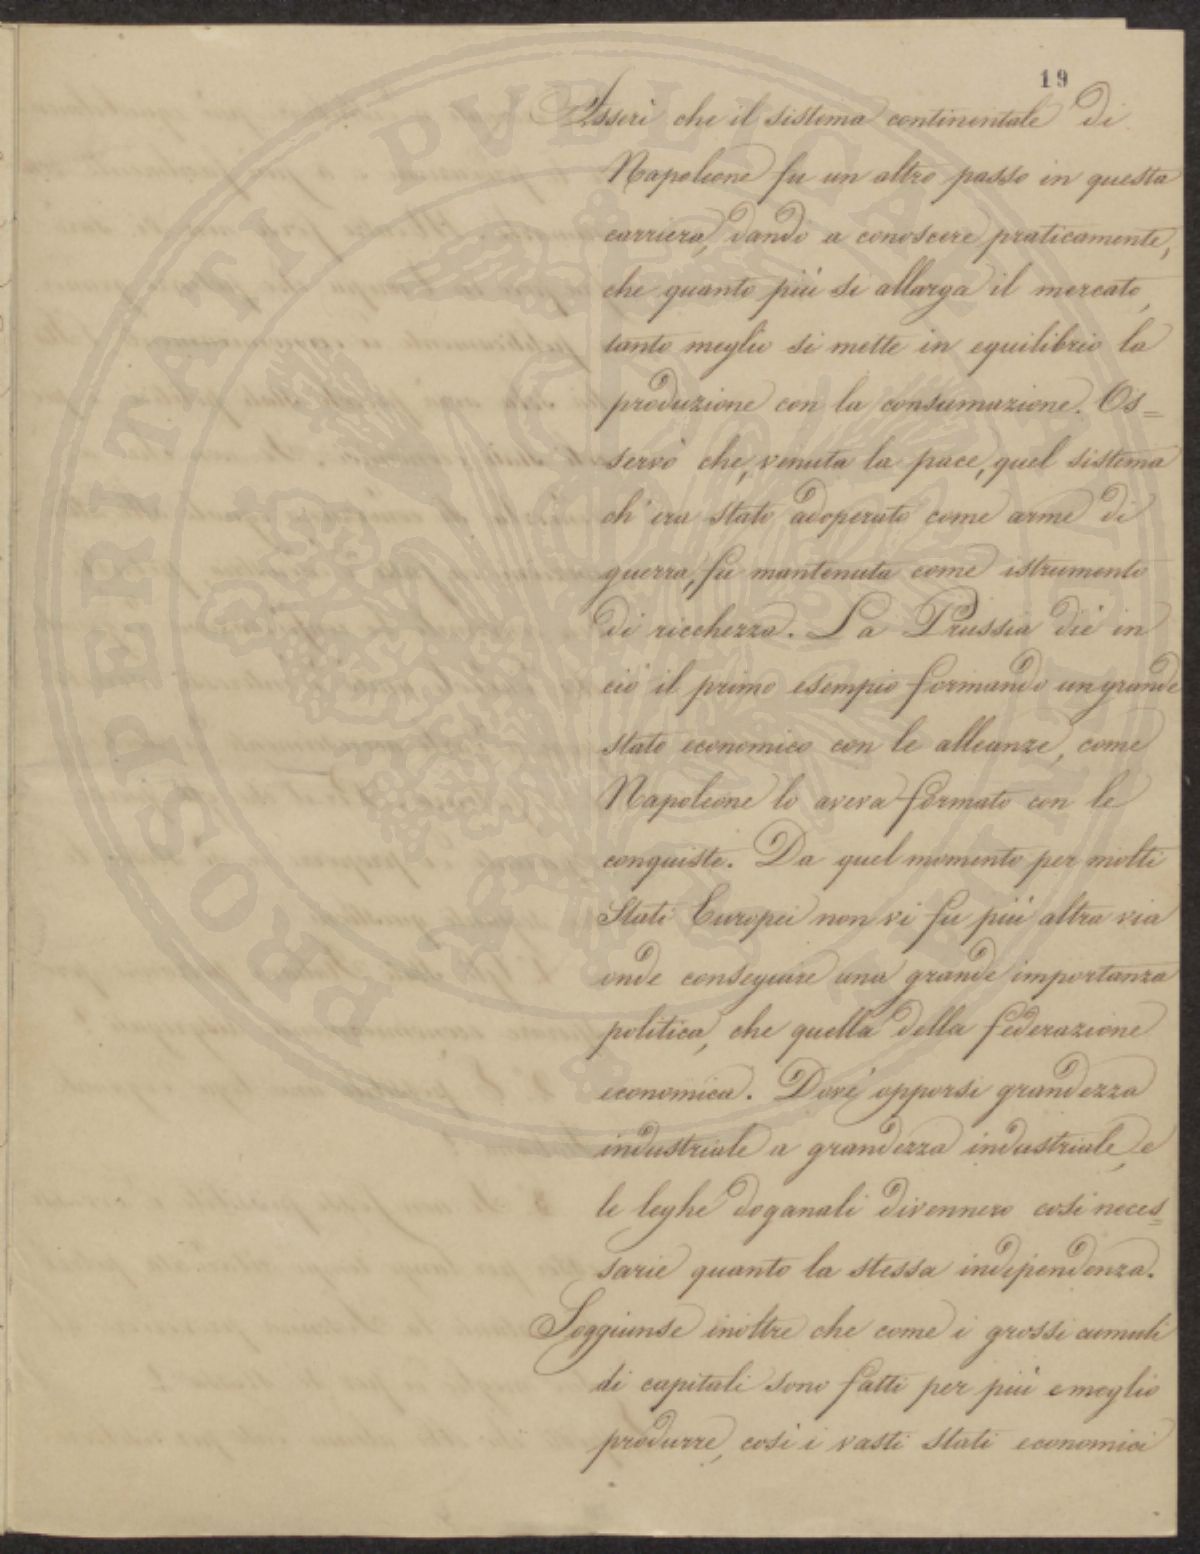 19
Asserì che il sistema continentale di
Napoleone fu un altro passo in questa
carriera, dando a conoscere praticamente,
che quanto più si allarga il mercato,
tanto meglio si mette in equilibrio la
produzione con la consumazione. Os=
servò che, venuta la pace, quel sistema
ch'era stato adoperato come arme di
guerra, fu mantenuta come istrumento
di ricchezza. La Prussia diè in
ciò il primo esempio formando un grande
stato economico con le alleanze, come
Napoleone lo aveva formato con le
conquiste. Da quel momento per molti
Stati Europei non vi fu più altra via
onde conseguire una grande importanza
politica, che quella della federazione
economica. Dové opporsi grandezza
industriale a grandezza industriale, e
le leghe doganali divennero così neces=
sarie quanto la stessa indipendenza.
Soggiunse inoltre che come i grossi cumuli
di capitali sono fatti per più e meglio
produrre, così i vasti stati economici
PROSPERITATI PVBLICAE